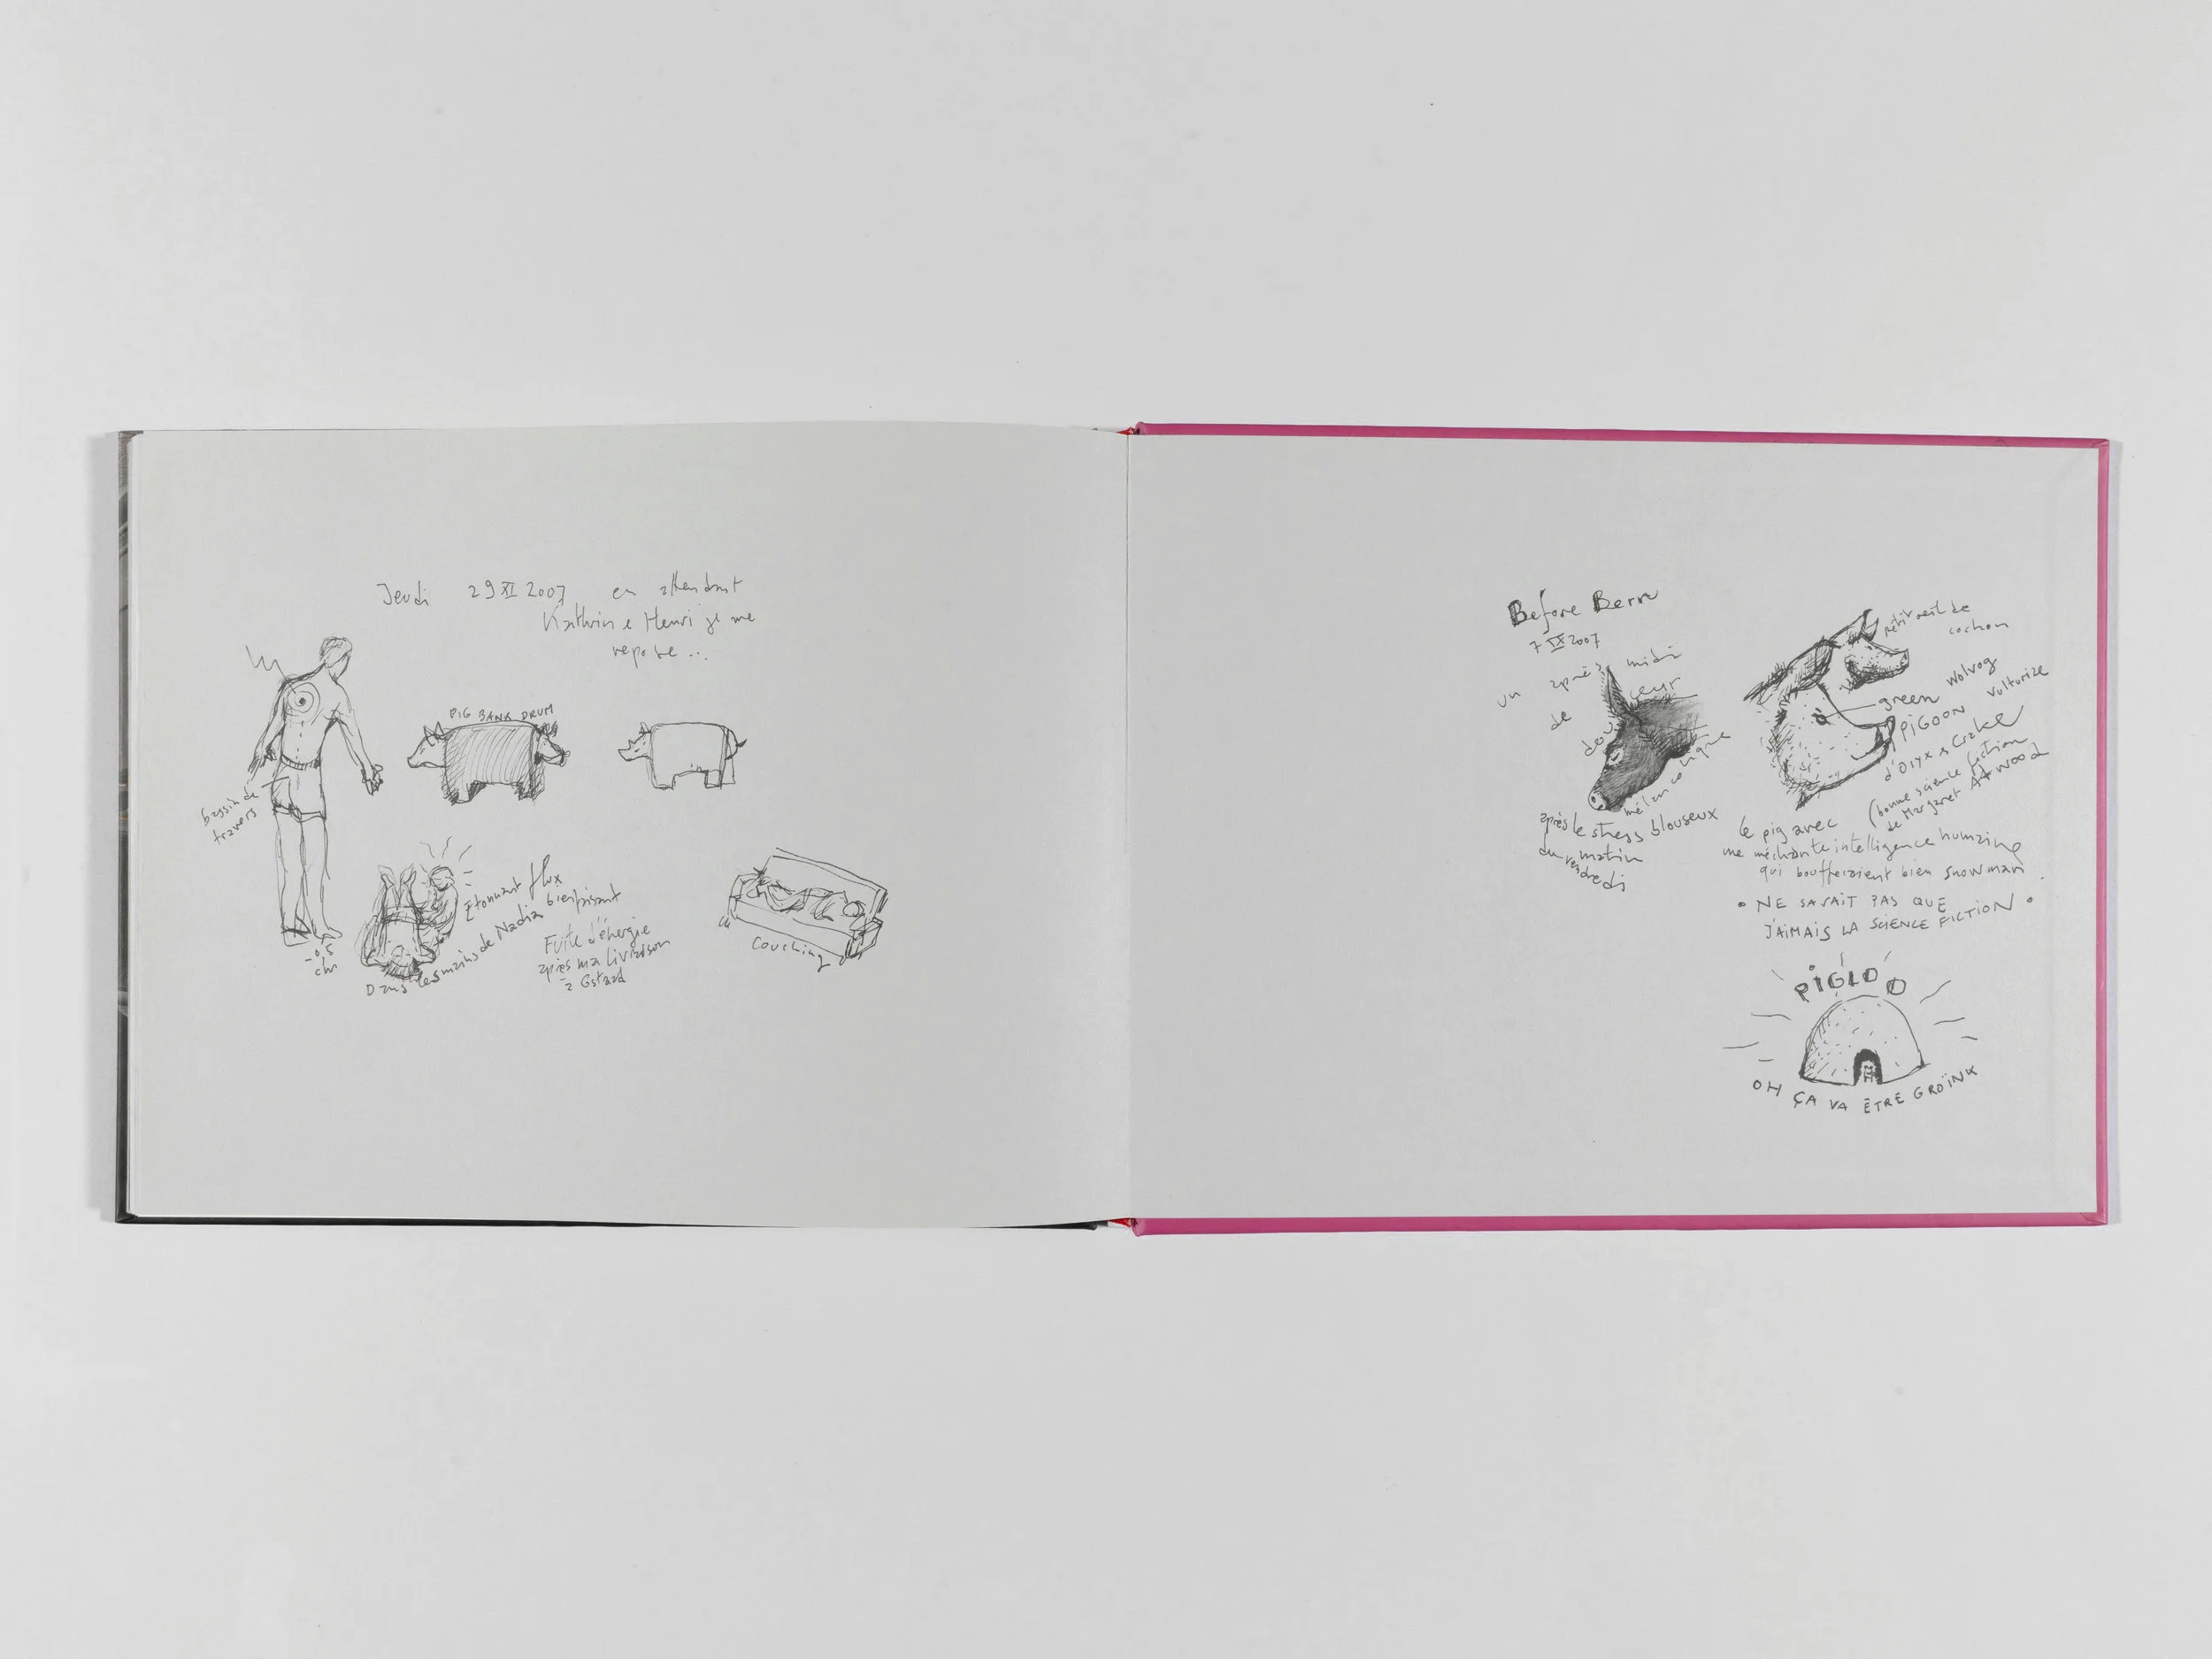 Jeudi 29 XI 2007 en attendant
Kathrin e Henri je me
repose...
PIG BANK DRUM
bassin de
travers
-0,5
cm
Étonnant flux bienfaisant
Dans les mains de Nadia
Fuite d'énergie
après ma livraison
à Gstaad
Couching
Before Berru
7 IX 2007
un après midi
de douceur
mélancolique
après le stress blouseux
du matin
vendredi
petit oeil de
cochon
green wolvog
vulturize
PIGOON
d'Oryx & Crake
(bonne science fiction
de Margaret Atwood
le pig avec
une méchante intelligence humaine
qui boufferaient bien snowman.
• NE SAVAIT PAS QUE
J'AIMAIS LA SCIENCE FICTION •
PIGLOO
OH ÇA VA ÊTRE GROÏNK